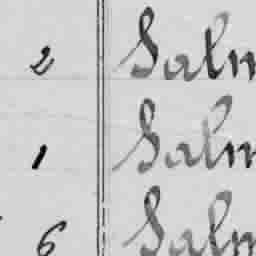 2 Salm
1 Salm
6 Salm